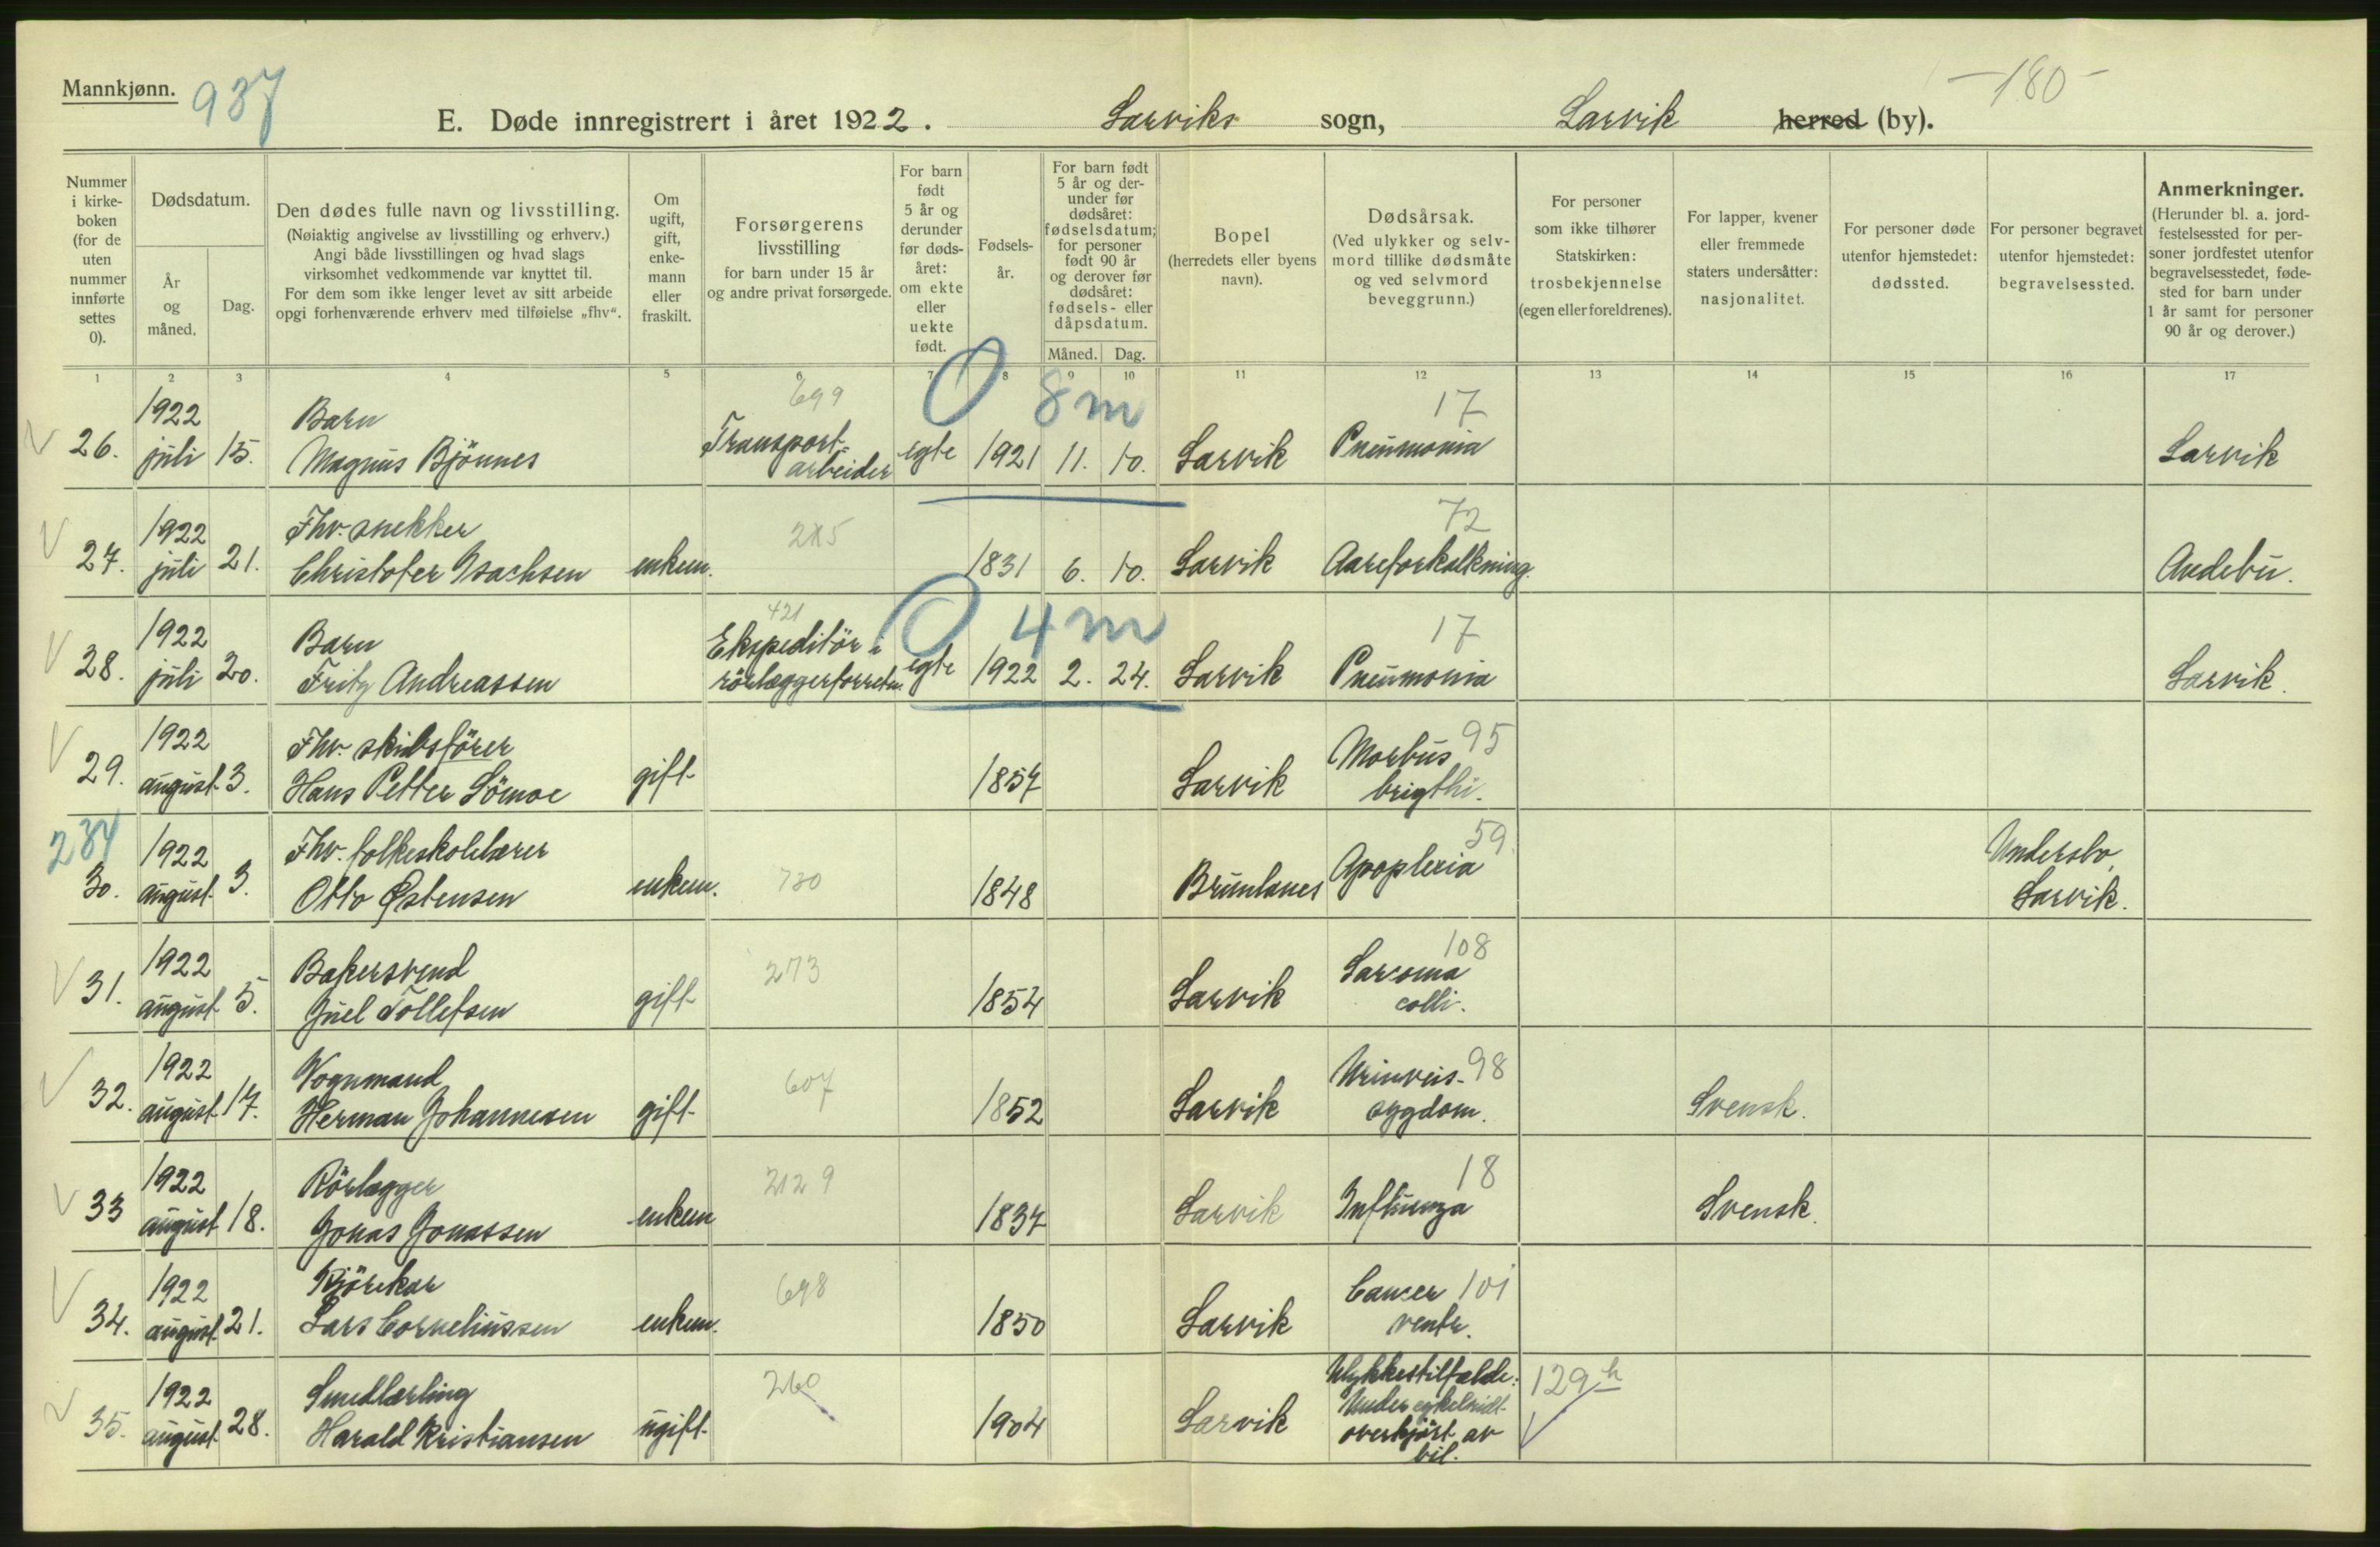 Mannkjønn.
937
-180-
E. Døde innregistrert i året 1922. Larviks sogn, Larvik herred (by).
Nummer i kirke-boken (for de uten nummer innførte settes 0).
Dødsdatum.
År og måned.
Dag.
Den dødes fulle navn og livsstilling.
(Nøiaktig angivelse av livsstilling og erhverv.)
Angi både livsstillingen og hvad slags
virksomhet vedkommende var knyttet til.
For dem som ikke lenger levet av sitt arbeide
opgi forhenværende erhverv med tilføielse „fhv“.
Om ugift, gift, enke-mann eller fraskilt.
Forsørgerens livsstilling
for barn under 15 år
og andre privat forsørgede.
For barn født 5 år og derunder før døds-året: om ekte eller uekte født.
Fødsels-år.
For barn født 5 år og der-under før dødsåret: fødselsdatum; for personer født 90 år og derover før dødsåret: fødsels- eller dåpsdatum.
Måned. Dag.
Bopel
(herredets eller byens navn).
Dødsårsak.
(Ved ulykker og selv-mord tillike dødsmåte og ved selvmord beveggrunn.)
For personer som ikke tilhører Statskirken: trosbekjennelse (egen eller foreldrenes).
For lapper, kvener eller fremmede staters undersåtter: nasjonalitet.
For personer døde utenfor hjemstedet: dødssted.
For personer begravet utenfor hjemstedet: begravelsessted.
Anmerkninger.
(Herunder bl. a. jord-festelsessted for per-soner jordfestet utenfor begravelsesstedet, føde-sted for barn under 1 år samt for personer 90 år og derover.)
1 2 3 4 5 6 7 8 9 10 11 12 13 14 15 16 17
1922 Barn 699 0 8 m 17
26. juli 15. Magnus Bjönnes Transport-arbeider egte 1921 11. 10. Larvik Pneumonia Larvik
1922 Fhv. snekker 215 72
27. juli 21. Christofer Isachsen enkem. 1831 6. 10. Larvik Aareforkalkning. Andebu.
1922 Barn 421 Ekspeditör i 0 4 m 17
28. juli 20. Fritz Andreassen rörlæggerforretn. egte 1922 2. 24. Larvik Pneumonia Larvik.
1922 Fhv. skibsförer Morbus 95
29. august 3. Hans Petter Sömoe gift 1857 Larvik brigthi.
234 1922 Fhv. folkeskolelærer 59 Undersbo,
30. august 3. Otto Østensen enkem. 730 1848 Brunlanes Apoplexia Larvik.
1922 Bakersvend 273 Sarcoma 108
31. august 5. Juel Tollefsen gift 1854 Larvik colli.
1922 Vognmand 607 Urinveis- 98
32. august 17. Herman Johannesen gift 1852 Larvik sygdom. Svensk.
1922 Rörlægger 2129 18
33 august 18. Jonas Jonassen enkem 1837 Larvik Influenza Svensk.
1922 Kjörekar 698 Cancer 101
34. august 21. Lars Corneliussen enkem. 1850 Larvik ventr.
1922 Smedlærling 260 Ulykkestilfælde: 129 h
35. august 28. Harald Kristiansen ugift 1904 Larvik Under cykelridt
overkjört av
bil.